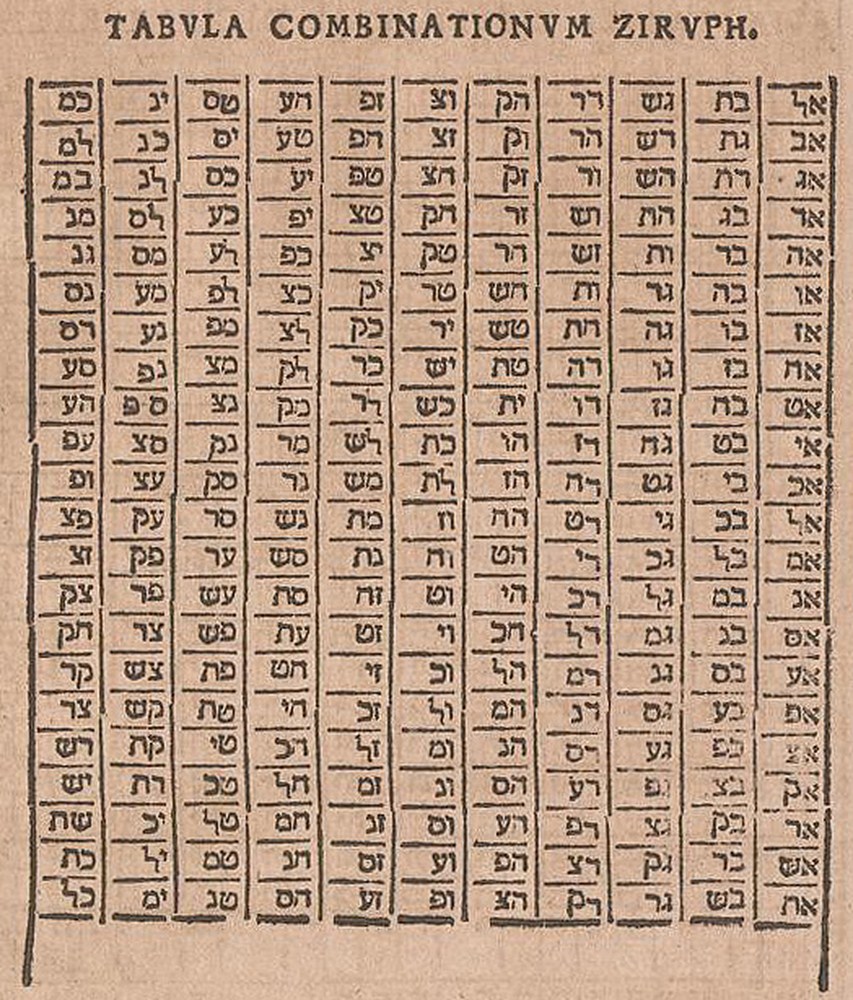 TABVLA COMBINATIONVM ZIRVPH.
אל בת גש דר הק וצ זפ חע טס ינ כמ
אב גת דש הר וק זצ חפ טע יס כנ למ
אג דת הש ור זק חצ טפ יע כס לנ במ
אד בג הת וש זר חק טצ יפ כע לס מנ
אה בד ות זש חר טק יצ כפ לע מס גנ
או בה גד זת חש טר יק כצ לפ מע נס
אז בו גה חת טש יר כק לצ מפ נע דס
אח בז גו דה טת יש כר לק מצ נפ סע
אט בח גז דו ית כש לר מק נצ ספ הע
אי בט גח דז הו כת לש מר נק סצ עפ
אכ בי גט דח הז לת מש נר סק עצ ופ
אל בכ גי דט הח וז מת נש סר עק פצ
אמ בל גכ די הט וח נת סש ער פק זצ
אנ במ גל דכ הי וט זח סת עש פר צק
אס בנ גמ דל הכ וי זט עת פש צר חק
אע בס גנ דמ הל וכ זי חט פת צש קר
אפ בע גס דנ המ ול זכ חי טת קש צר
אצ בפ גע דס הנ ומ זל חכ טי קת רש
אק בצ גפ דע הס ונ זמ חל טכ רת יש
אר בק גצ דפ הע וס זנ חמ טל יכ שת
אש בר גק דצ הפ וע זס חנ טמ יל כת
את בש גר דק הצ ופ זע חס טנ ימ כל